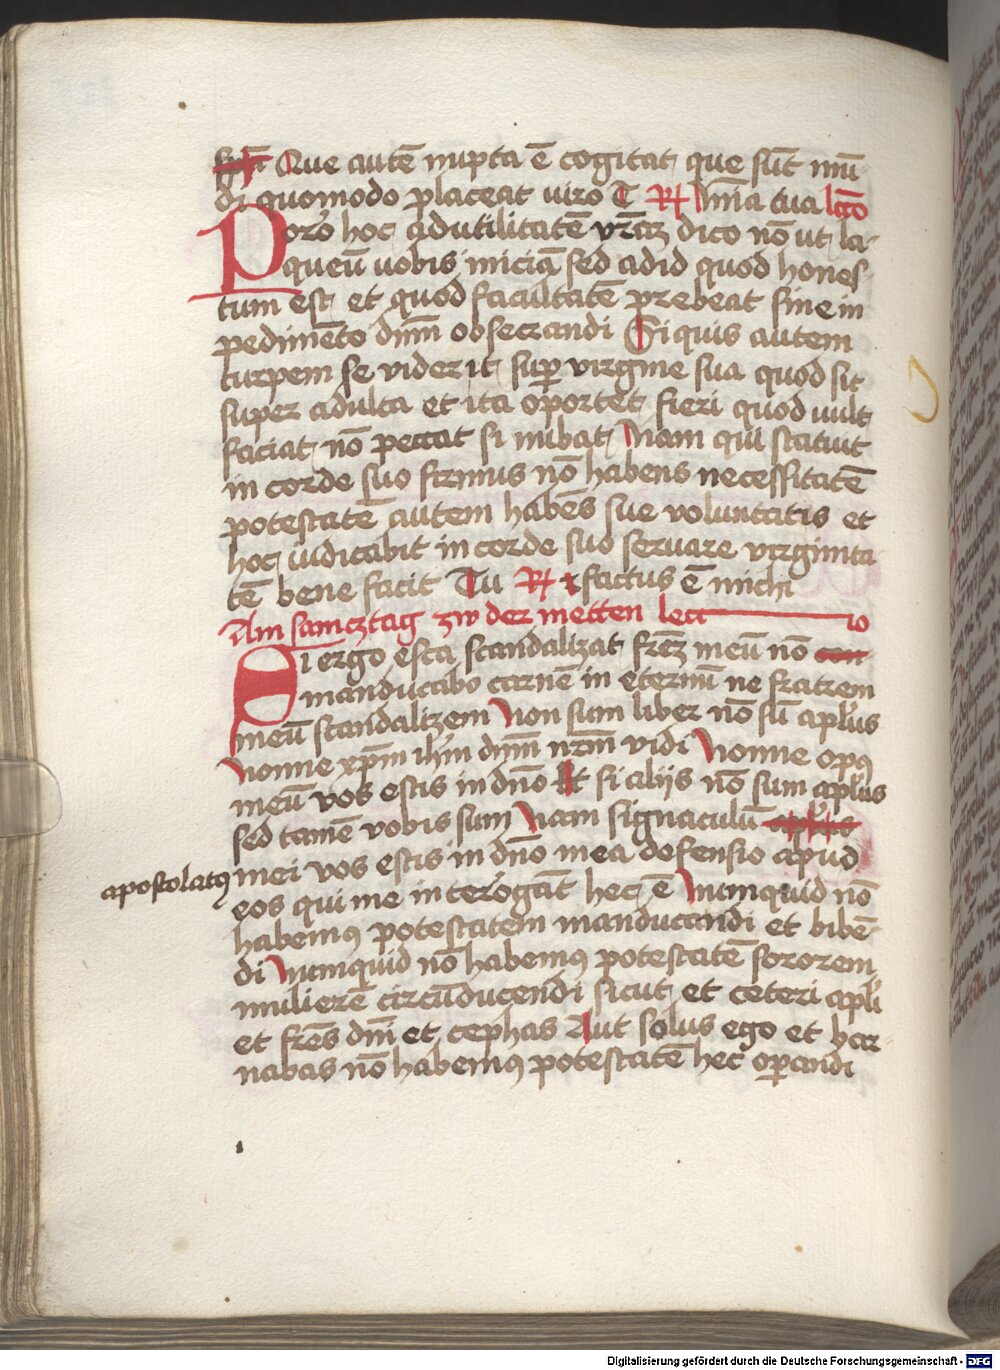 Que autē nupta ē cogitat que sūt mū-
di quomodo placeat uiro T ℟ Ām̄a tua lc̄o
Porro hoc ad utilitatē vr̄aꝫ dico nō ut la-
queū uobis iniciā sed ad id quod hones-
tum est et quod facultatē prebeat sine in
pedimēto dn̄m obsecrandi Si quis autem
turpem se viderit sup̄ virgine sua quod sit
super adulta et ita oportet fieri quod uult
faciat nō peccat si nubat Nam qui statuit
in corde suo firmus nō habens necessitatē
potestatē autem habēs sue voluntatis et
hoc iudicabit in corde suo seruare virginita
tē bene facit Tu ℟ factus ē michi
Am samcztag zw der metten lect io
Si ergo esca scandalizat fr̄eꝫ meū nō
manducabo carnē in eternū ne fratrem
meū scandalizem Non sum liber nō sū apl̄us
Nonne xp̄m ih̄m dn̄m nr̄m vidi Nonne opꝰ
meū vos estis in dn̄o Et si alijs nō sum apl̄us
sed tamē vobis sum Nam signaculū apl̄us
apostolatꝰ mei vos estis in dn̄o mea defensio apud
eos qui me interrogāt hec ē Numquid nō
habemꝰ potestatem manducandi et bibē-
di Numquid nō habemꝰ potestatē sororem
mulierē circūducendi sicut et ceteri apl̄i
et fr̄es dn̄i et cephas Aut solus ego et bar
nabas nō habemꝰ potestatē hec operandi
Digitalisierung gefördert durch die Deutsche Forschungsgemeinschaft - DFG